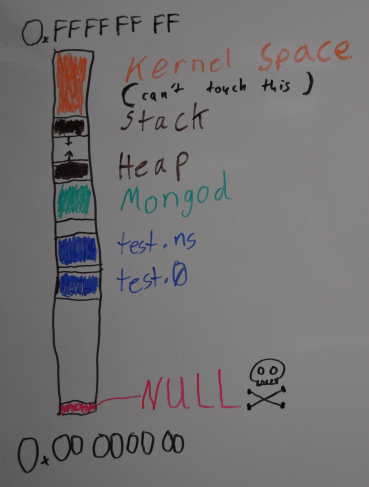 0xFFFFFFFF
Kernel Space
(can't touch this)
Stack
Heap
Mongod
test.ns
test.0
NULL
0x00000000